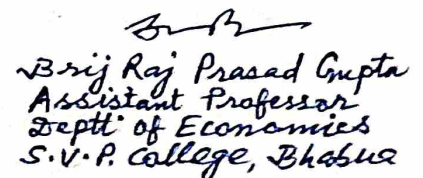 Brij Raj Prasad Gupta
Assistant Professor
Deptt' of Economics
S.V.P. College, Bhabua